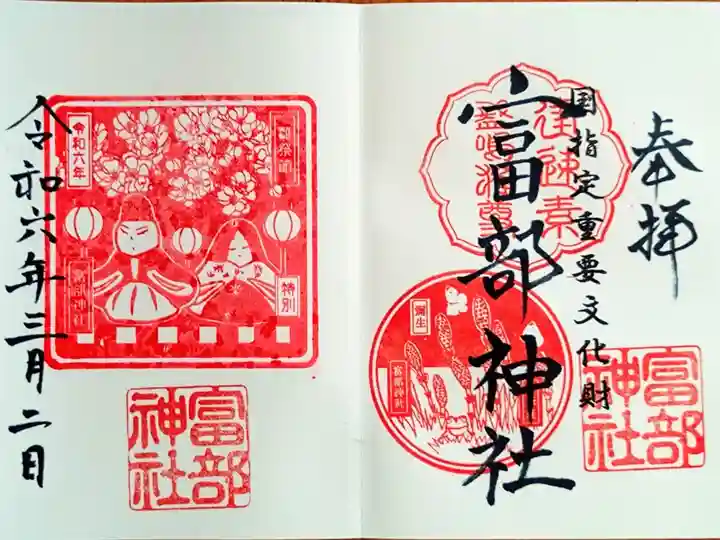 奉拝
国指定重要文化財
富部神社
彌生
富部神社
富部神社
令和六年
特別
富部神社
富部神社
令和六年三月二日